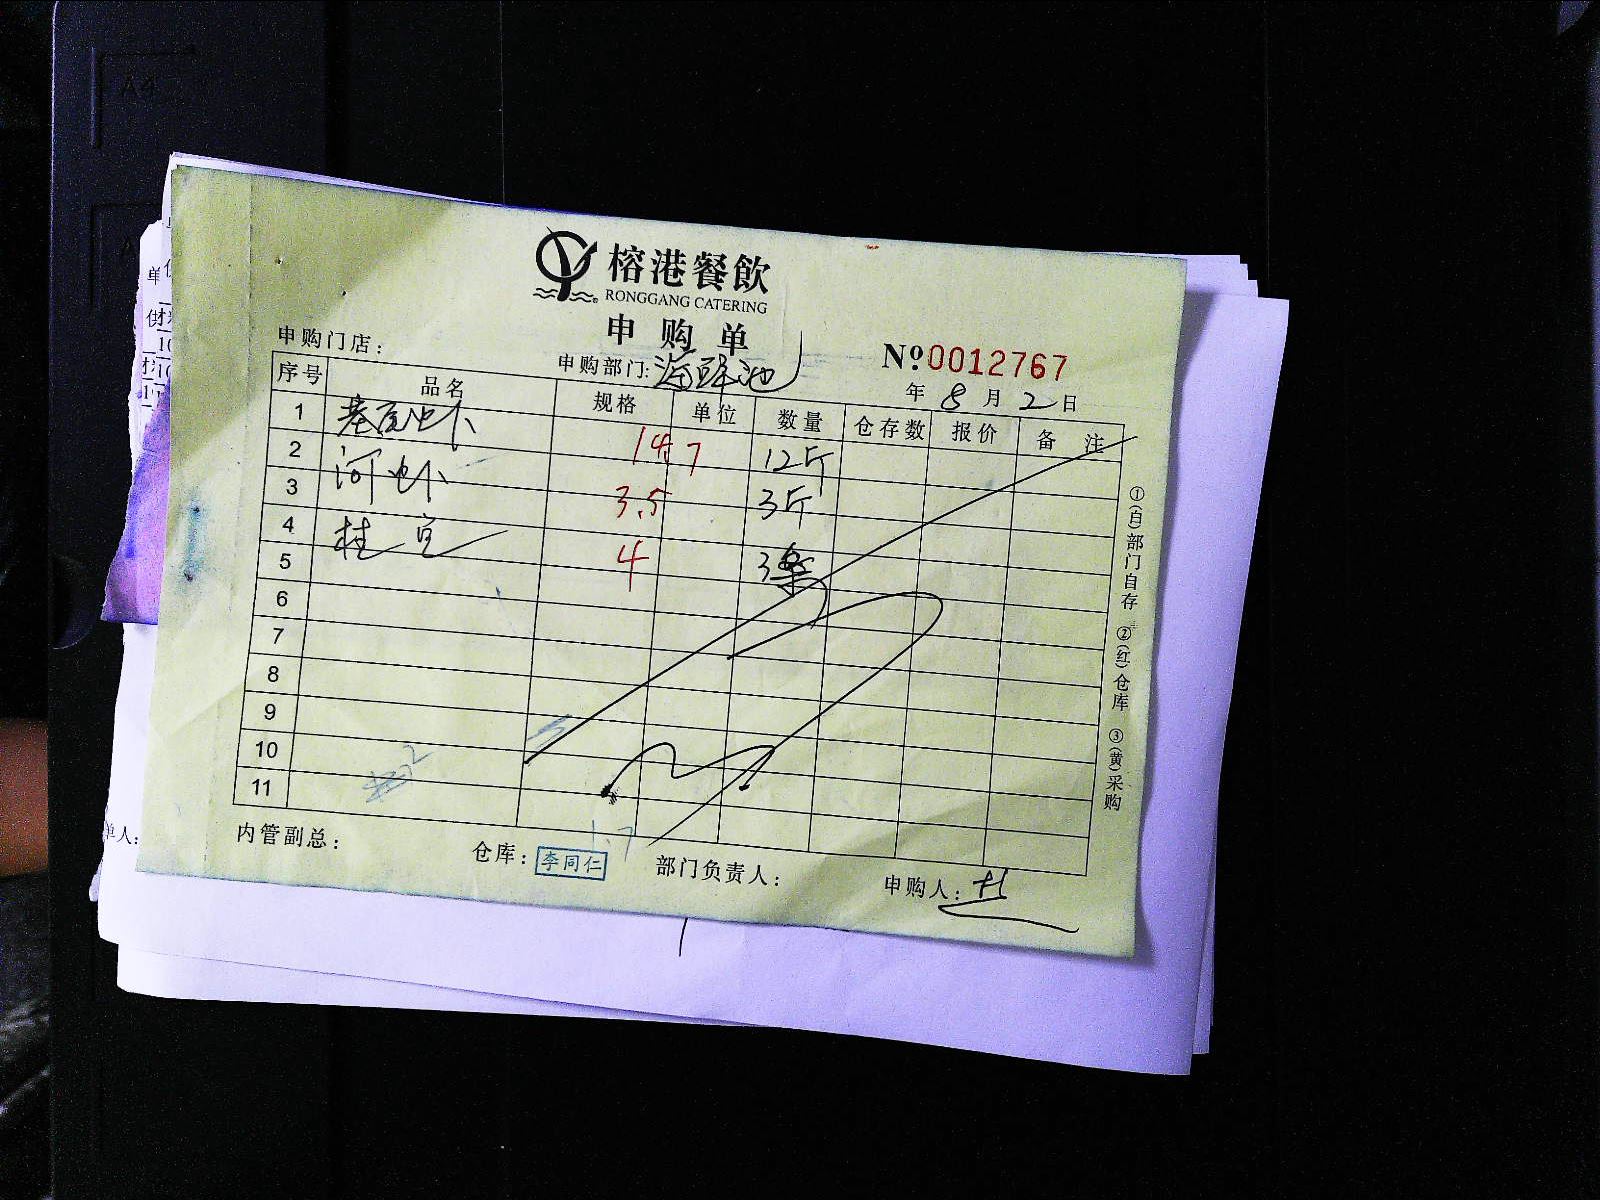 榕港餐飲
RONGGANG CATERING
申购单
申购门店：
申购部门：海鲜池
№0012767
年 8 月 2 日
序号 品名 规格 单位 数量 仓存数 报价 备注
1 基尾虾 14.7 12斤
2 河虾 3.5 3斤
3 桂 4 3
4
5
6
7
8
9
10
11
内管副总：
仓库：李同仁
部门负责人：
申购人：
①(白)部门自存 ②(红)仓库 ③(黄)采购
1.7
A4
单人：